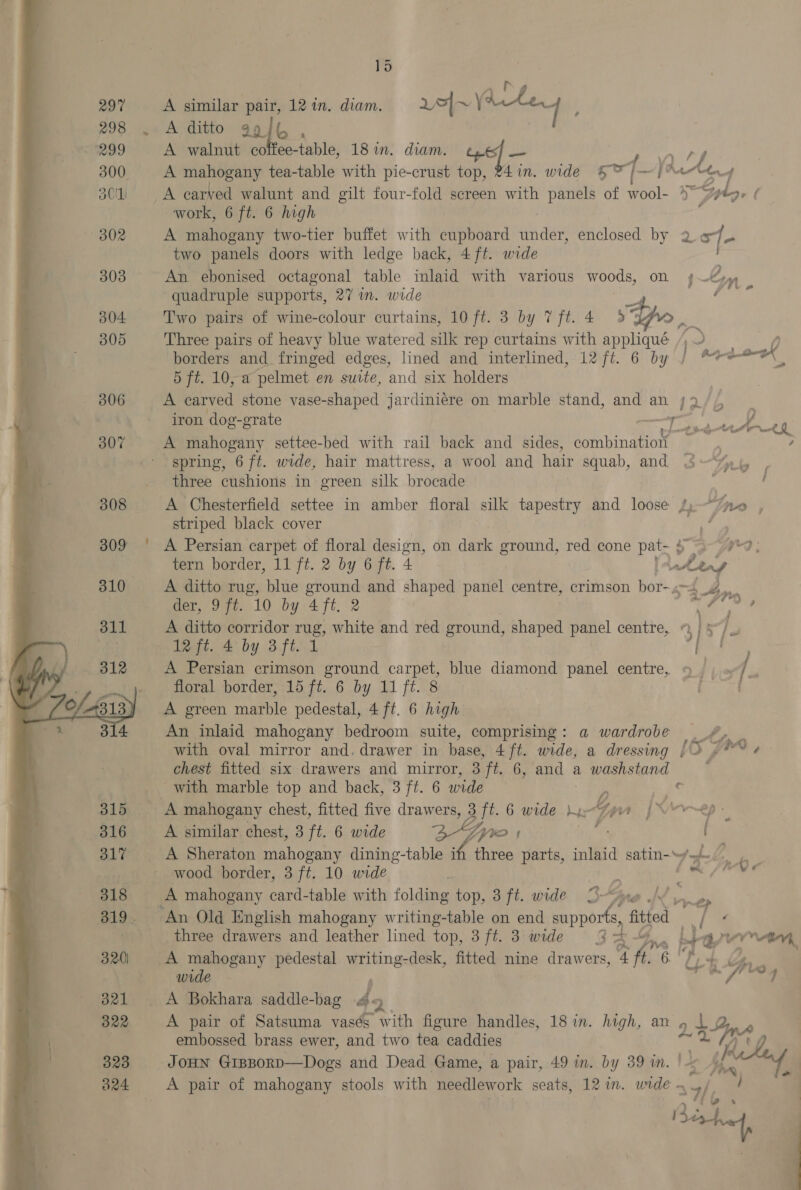 15
297 A similar pair, 12 in. diam.
298 A ditto
299 A walnut coffee-table, 18 in. diam.
300 A mahogany tea-table with pie-crust top, 24 in. wide
301 A carved walunt and gilt four-fold screen with panels of wool-
work, 6 ft. 6 high
302 A mahogany two-tier buffet with cupboard under, enclosed by
two panels doors with ledge back, 4 ft. wide
303 An ebonised octagonal table inlaid with various woods, on
quadruple supports, 27 in. wide
304 Two pairs of wine-colour curtains, 10 ft. 3 by 7 ft. 4
305 Three pairs of heavy blue watered silk rep curtains with appliqué
borders and fringed edges, lined and interlined, 12 ft. 6 by
5 ft. 10, a pelmet en suite, and six holders
306 A carved stone vase-shaped jardinière on marble stand, and an
iron dog-grate
307 A mahogany settee-bed with rail back and sides, combination
spring, 6 ft. wide, hair mattress, a wool and hair squab, and
three cushions in green silk brocade
308 A Chesterfield settee in amber floral silk tapestry and loose
striped black cover
309 A Persian carpet of floral design, on dark ground, red cone pat-
tern border, 11 ft. 2 by 6 ft. 4
310 A ditto rug, blue ground and shaped panel centre, crimson bor-
der, 9 ft. 10 by 4 ft. 2
311 A ditto corridor rug, white and red ground, shaped panel centre,
12 ft. 4 by 3 ft. 1
312 A Persian crimson ground carpet, blue diamond panel centre,
floral border, 15 ft. 6 by 11 ft. 8
313 A green marble pedestal, 4 ft. 6 high
314 An inlaid mahogany bedroom suite, comprising: a wardrobe
with oval mirror and drawer in base, 4 ft. wide, a dressing
chest fitted six drawers and mirror, 3 ft. 6, and a washstand
with marble top and back, 3 ft. 6 wide
315 A mahogany chest, fitted five drawers, 3 ft. 6 wide
316 A similar chest, 3 ft. 6 wide
317 A Sheraton mahogany dining-table in three parts, inlaid satin-
wood border, 3 ft. 10 wide
318 A mahogany card-table with folding top, 3 ft. wide
319 An Old English mahogany writing-table on end supports, fitted
three drawers and leather lined top, 3 ft. 3 wide
320 A mahogany pedestal writing-desk, fitted nine drawers, 4 ft. 6
wide
321 A Bokhara saddle-bag
322 A pair of Satsuma vases with figure handles, 18 in. high, an
embossed brass ewer, and two tea caddies
323 JOHN GIBBORD—Dogs and Dead Game, a pair, 49 in. by 39 in.
324 A pair of mahogany stools with needlework seats, 12 in. wide